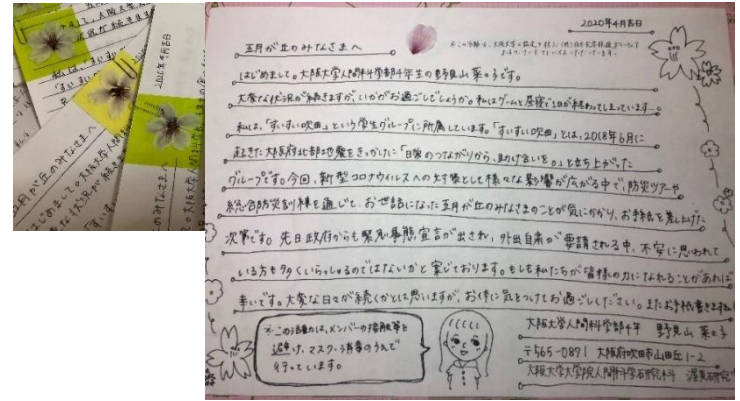 2020年4月吉日
五月が丘のみなさまへ
はじめまして。大阪大学人間科学部4年生の野見山
大変な状況が続きますが、いかがお過ごしでしょうか。私はゲームと昼寝で1日が終わってしまっています…。
私は、「すいすい吹田」という学生グループに所属しています。「すいすい吹田」とは、2018年6月に
起きた大阪府北部地震をきっかけに「日頃のつながりから、助け合いを。」と立ち上がった
グループです。今回、新型コロナウイルスへの対策として様々な影響が広がる中で、防災ツアーや
総合防災訓練を通じて、お世話になった五月が丘のみなさまのことが気にかかり、お手紙を差し上げた
次第です。先日政府からも緊急事態宣言が出され、外出自粛が要請される中、不安に思われて
いる方も多くいらっしゃるのではないかと案じております。もしも私たちが皆様の力になれることがあれば
幸いです。大変な日々が続くかとは思いますが、お体に気をつけてお過ごしください。またお手紙書きますね
※この活動は、メンバーの接触等を
避け、マスク・消毒のうえで
行っています。
大阪大学人間科学部4年 野見山
〒565-0871 大阪府吹田市山田丘1-2
大阪大学大学院人間科学研究科 渥美研究
2020年4月吉日
五月が丘のみなさまへ